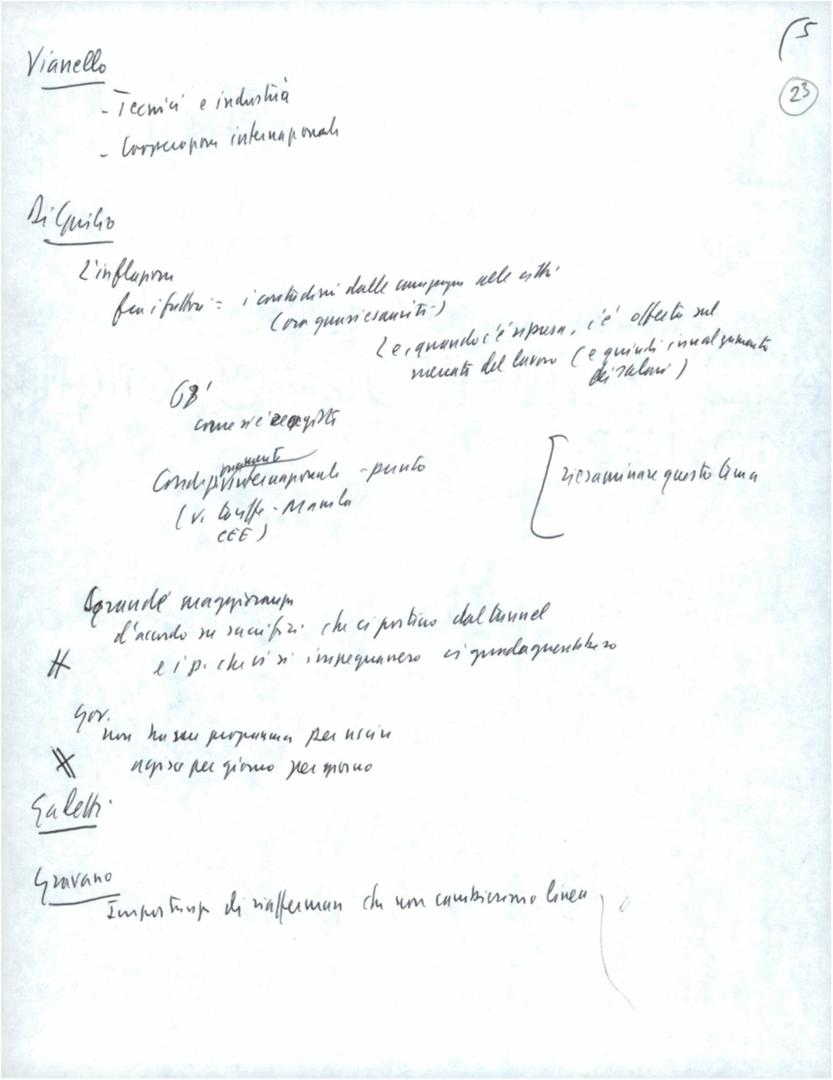 5
23
Vianello
- Tecnici e industria
- Cooperazioni internazionali
Di Giulio
L'inflazione
fra i fattori = i contadini dalle campagne alle città
(ora quasi esauriti -)
e, quando c'è ripresa, c'è offerta sul
mercato del lavoro (e quindi innalzamento
dei salari)
68'
come si è reagito
internazionale - punto
(v. - Manila
CEE)
riesaminare questo tema
Grande maggioranza
d'accordo su sacrifizi che ci portino dal tunnel
# e i p. che vi si impegnassero ci guadagnerebbero
Gov.
non ha un programma per uscire
# agisce per giorno per giorno
Galetti
Gravano
Importanza di riaffermare che non cambieremo linea